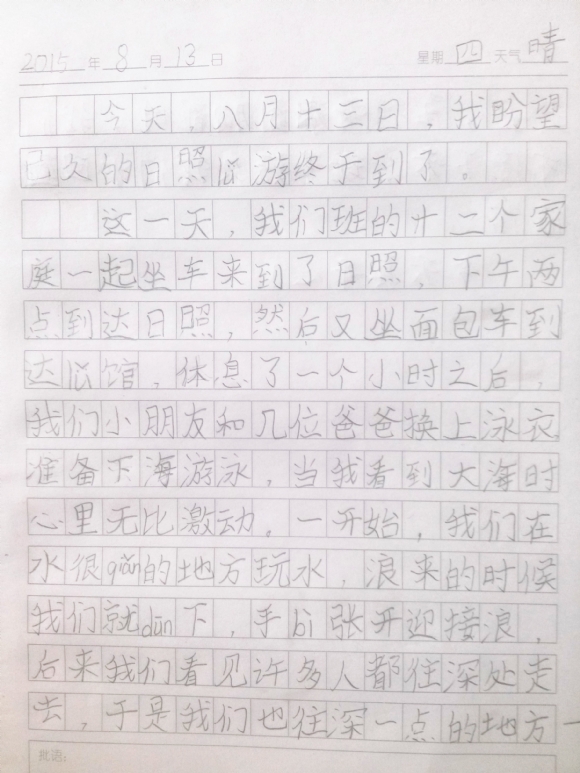 2015年8月13日 星期四 天气晴
今天,八月十三日,我盼望
已久的日照游终于到了。
这一天,我们班的十二个家
庭一起坐车来到了日照,下午两
点到达日照,然后又坐面包车到
达馆,休息了一个小时之后,
我们小朋友和几位爸爸换上泳衣
准备下海游泳,当我看到大海时
心里无比激动。一开始,我们在
水很qiǎn的地方玩水,浪来的时候
我们就dūn下,手bì张开迎接浪,
后来我们看见许多人都往深处走
去,于是我们也往深一点的地方
批语: